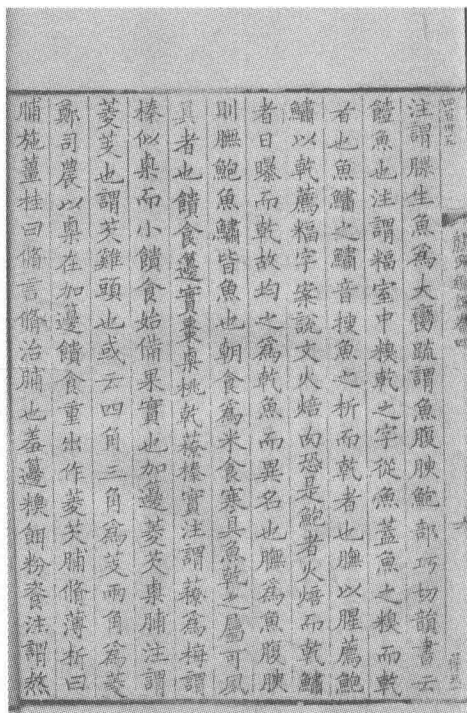 注謂膴生魚爲大臠疏謂魚腹腴鮑部巧切韻書云
饐魚也注謂糗室中糗乾之字從魚蓋魚之糗而乾
者也魚鱐之鱐音搜魚之析而乾者也膴以腥薦鮑
鱐以乾薦糗字案說文火焙肉恐是鮑者火焙而乾鱐
者日曝而乾故均之爲乾魚而異名也膴爲魚腹腴
則膴鮑魚鱐皆魚也朝食爲米食寒具魚乾之屬可風
具者也饋食籩實棗㮚桃乾䕩榛實注謂䕩爲梅謂
榛似㮚而小饋食始備果實也加籩菱芡㮚脯注謂
菱芰也謂芡雞頭也或云四角三角爲芰兩角爲菱
鄭司農以㮚在加籩饋食重出作菱芡脯脩薄析曰
脯施薑桂曰脩言脩治脯也羞籩糗餌粉餈注謂熬